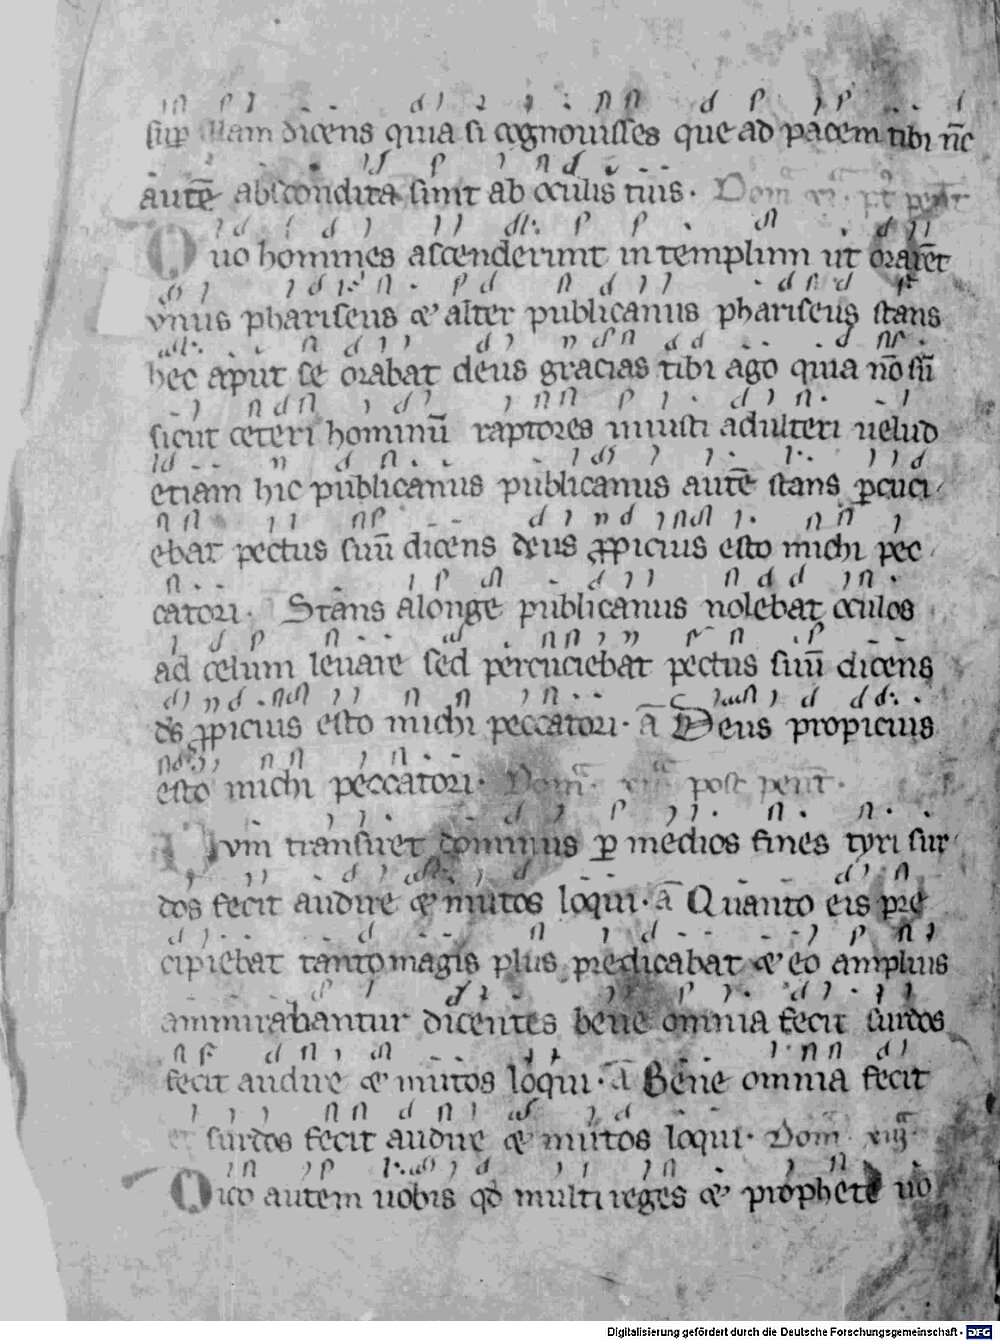 sup illam dicens quia si cognouisses que ad pacem tibi nc̄
autē abscondita sunt ab oculis tuis · Dom̄ xi · pt̄ pent̄
Duo homines ascenderunt in templum ut orarēt
vnus phariseus & alter publicanus phariseus stans
hec aput se orabat deus gracias tibi ago quia nō sū
sicut ceteri hominū raptores iniusti adulteri uelud
etiam hic publicanus publicanus autē stans ꝑcuci
ebat pectus suū dicens deus ꝓpicius esto michi pec
catori · Stans alonge publicanus nolebat oculos
ad celum leuare sed percuciebat pectus suū dicens
ds̄ ꝓpicius esto michi peccatori · a̅ Deus propicius
esto michi peccatori · Dom̄ · xii post pent̄ ·
Dvm transiret dominus ꝑ medios fines tyri sur
dos fecit audire & mutos loqui · a̅ Quanto eis pre
cipiebat tanto magis plus predicabat & eo amplius
ammirabantur dicentes bene omnia fecit surdos
fecit audire & mutos loqui · a̅ Bene omnia fecit
et surdos fecit audire & mutos loqui · Dom̄ xiiij
Dico autem uobis qd̄ multi reges & prophete uo
Digitalisierung gefördert durch die Deutsche Forschungsgemeinschaft - DFG